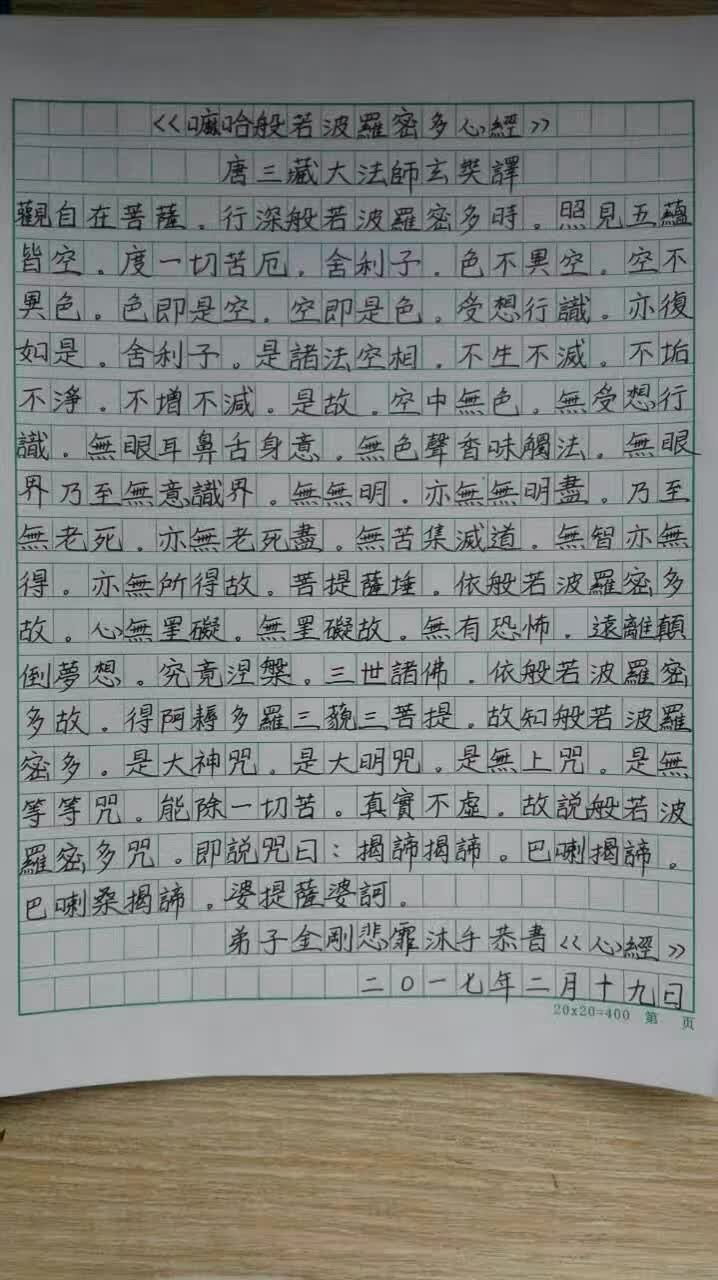 《嘛哈般若波羅密多心經》
唐三藏大法師玄奘譯
觀自在菩薩。行深般若波羅密多時。照見五蘊
皆空。度一切苦厄。舍利子。色不異空。空不
異色。色即是空。空即是色。受想行識。亦復
如是。舍利子。是諸法空相。不生不滅。不垢
不淨。不增不減。是故。空中無色。無受想行
識。無眼耳鼻舌身意。無色聲香味觸法。無眼
界乃至無意識界。無無明。亦無無明盡。乃至
無老死。亦無老死盡。無苦集滅道。無智亦無
得。亦無所得故。菩提薩埵。依般若波羅密多
故。心無罣礙。無罣礙故。無有恐怖。遠離顛
倒夢想。究竟涅槃。三世諸佛。依般若波羅密
多故。得阿耨多羅三藐三菩提。故知般若波羅
密多。是大神咒。是大明咒。是無上咒。是無
等等咒。能除一切苦。真實不虛。故說般若波
羅密多咒。即説咒曰：揭諦揭諦。巴喇揭諦。
巴喇桑揭諦。婆提薩婆訶。
弟子金剛悲霏沐手恭書《心經》
二〇一七年二月十九日
20x20=400 第 页